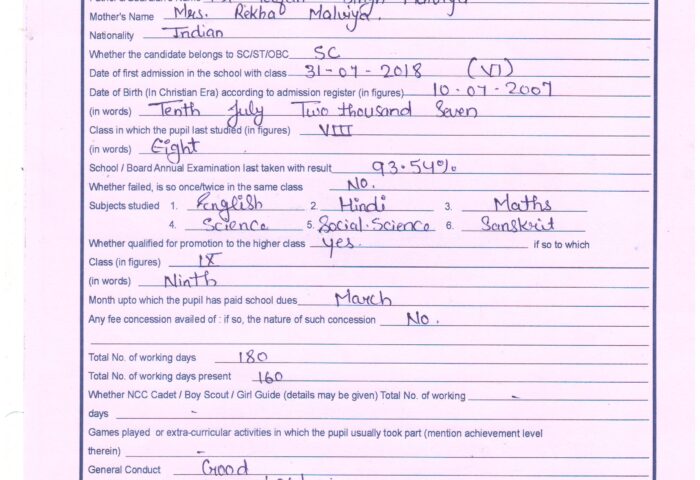 Mother's Name Mrs. Rekha Malviya
Nationality Indian
Whether the candidate belongs to SC/ST/OBC SC
Date of first admission in the school with class 31-07-2018 (VI)
Date of Birth (In Christian Era) according to admission register (in figures) 10-07-2007
(in words) Tenth July Two thousand Seven
Class in which the pupil last studied (in figures) VIII
(in words) Eight
School / Board Annual Examination last taken with result 93.54%
Whether failed, is so once/twice in the same class No.
Subjects studied 1. English 2. Hindi 3. Maths
4. Science 5. Social Science 6. Sanskrit
Whether qualified for promotion to the higher class yes. if so to which
Class (in figures) IX
(in words) Ninth
Month upto which the pupil has paid school dues March
Any fee concession availed of : if so, the nature of such concession No.
Total No. of working days 180
Total No. of working days present 160
Whether NCC Cadet / Boy Scout / Girl Guide (details may be given) Total No. of working -
days -
Games played or extra-curricular activities in which the pupil usually took part (mention achievement level
therein) -
General Conduct Good